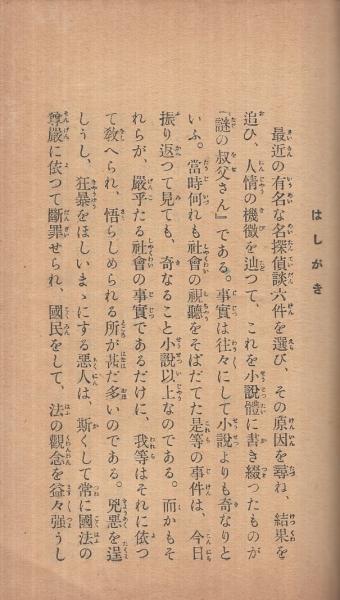 はしがき
最近の有名な名探偵談六件を選び、その原因を尋ね、結果を
追ひ、人情の機微を辿つて、これを小説體に書き綴つたものが
『謎の叔父さん』である。事實は往々にして小説よりも奇なりと
いふ。當時何れも社會の視聽をそばだてた是等の事件は、今日
振り返つて見ても、奇なること小説以上なのである。而かもそ
れらが、嚴乎たる社會の事實であるだけに、我等はそれに依つ
て敎へられ、悟らしめられる所が甚だ多いのである。兇惡を逞
しうし、狂暴をほしいまゝにする惡人は、斯くして常に國法の
尊嚴に依つて斷罪せられ、國民をして、法の觀念を益々强うし